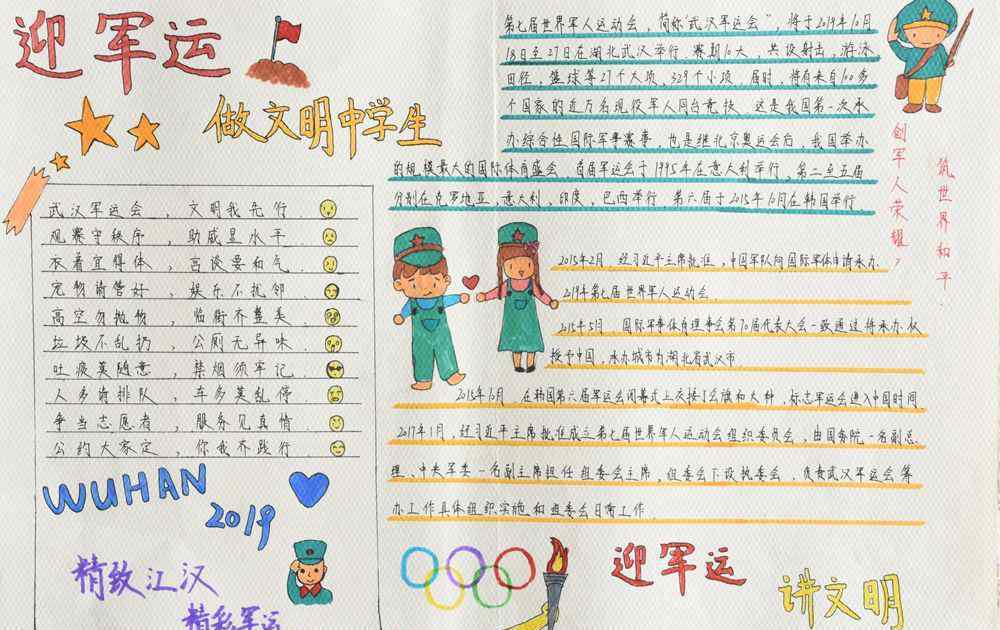 迎军运
做文明中学生
武汉军运会，文明我先行
观赛守秩序，助威显水平
衣着宜得体，言谈要和气
宠物请管好，娱乐不扰邻
高空勿抛物，临街齐整美
垃圾不乱扔，公厕无异味
吐痰莫随意，禁烟须牢记
人多请排队，车多莫乱停
争当志愿者，服务见真情
公约大家定，你我齐践行
WUHAN
2019
精致江汉
精彩军运
第七届世界军人运动会，简称"武汉军运会"，将于2019年10月
18日至27日在湖北武汉举行，赛期10天，共设射击，游泳
田径，篮球等27个大项，329个小项，届时，将有来自100多
个国家的近万名现役军人同台竞技，这是我国第一次承
办综合性国际军事赛事，也是继北京奥运会后，我国举办
的规模最大的国际体育盛会，首届军运会于1995年在意大利举行，第二至五届
分别在克罗地亚，意大利，印度，巴西举行，第六届于2015年10月在韩国举行
创军人荣耀，
筑世界和平
2015年2月，经习近平主席批准，中国军队向国际军体申请承办
2019年第七届世界军人运动会
2015年5月，国际军事体育理事会第70届代表大会一致通过将承办权
授予中国，承办城市为湖北省武汉市
2015年10月，在韩国第六届军运会闭幕式上交接了会旗和火种，标志军运会进入中国时间
2017年1月，经习近平主席批准成立第七届世界军人运动会组织委员会，由国务院一名副总
理、中央军委一名副主席担任组委会主席，组委会下设执委会，负责武汉军运会筹
办工作具体组织实施和组委会日常工作
迎军运
讲文明